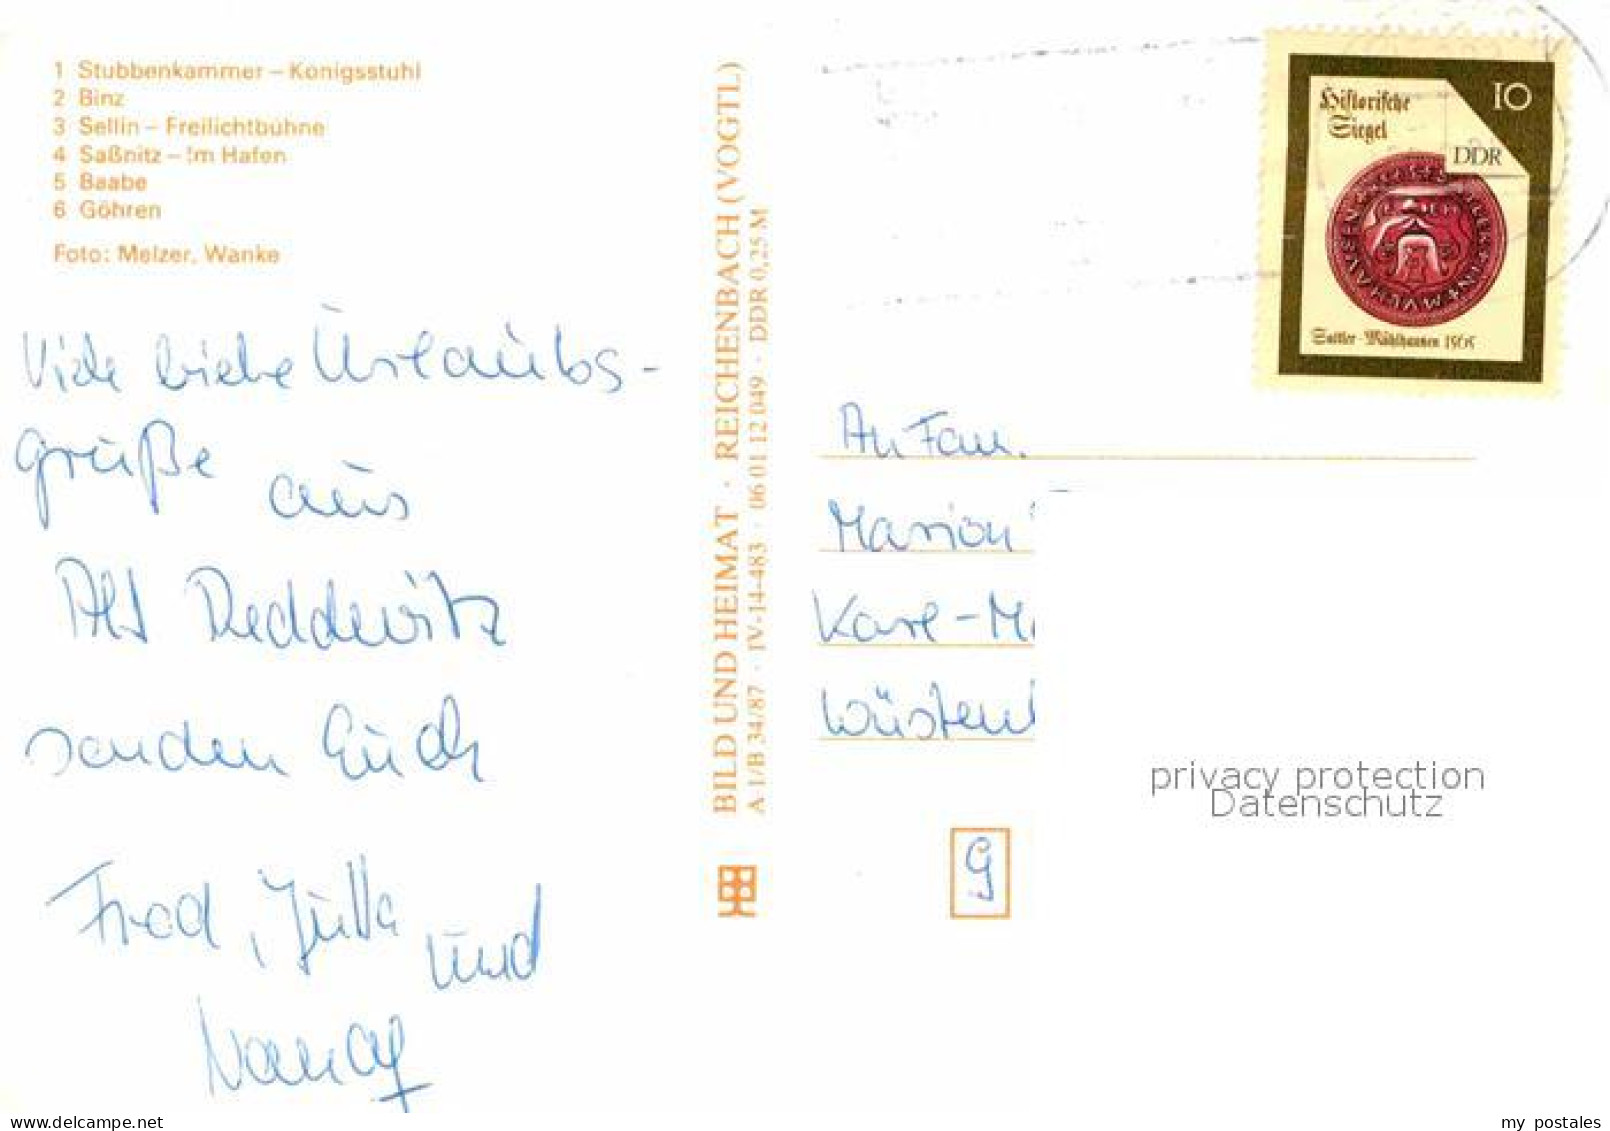 1 Stubbenkammer – Königsstuhl
2 Binz
3 Sellin – Freilichtbühne
4 Saßnitz – Im Hafen
5 Baabe
6 Göhren
Foto: Melzer, Wanke
Viele liebe Urlaubs-
grüße aus
Alt Reddewitz
senden Euch
Fred, Jutta und
Nancy
BILD UND HEIMAT · REICHENBACH (VOGTL)
A 1/B 34/87 · IV-14-483 · 06 01 12 049 · DDR 0,25 M
Historische
Siegel
10
DDR
Sattler-Mühlhausen 1565
An Fam.
Marion
Karl-M
Wüsten
G
privacy protection
Datenschutz
delcampe.net
my postales